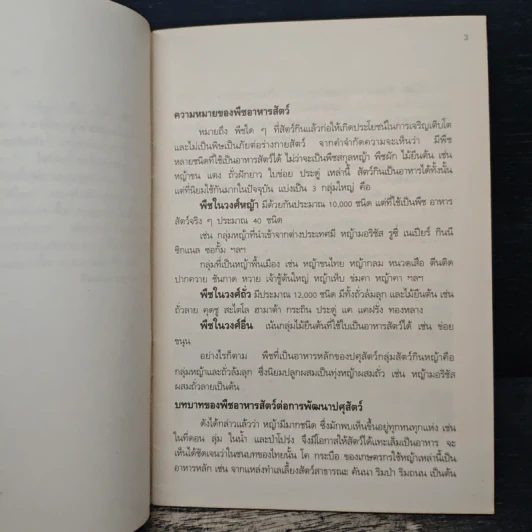 3
ความหมายของพืชอาหารสัตว์
หมายถึง พืชใด ๆ ที่สัตว์กินแล้วก่อให้เกิดประโยชน์ในการเจริญเติบโต
และไม่เป็นพิษเป็นภัยต่อร่างกายสัตว์ จากคำจำกัดความจะเห็นว่า มีพืช
หลายชนิดที่ใช้เป็นอาหารสัตว์ได้ ไม่ว่าจะเป็นพืชสกุลหญ้า พืชผัก ไม้ยืนต้น เช่น
หญ้าขน แตง ถั่วฝักยาว ใบข่อย ประดู่ เหล่านี้ สัตว์กินเป็นอาหารได้ทั้งนั้น
แต่ที่นิยมใช้กันมากในปัจจุบัน แบ่งเป็น 3 กลุ่มใหญ่ คือ
พืชในวงศ์หญ้า มีด้วยกันประมาณ 10,000 ชนิด แต่ที่ใช้เป็นพืช อาหาร
สัตว์จริง ๆ ประมาณ 40 ชนิด
เช่น กลุ่มหญ้าที่นำเข้าจากต่างประเทศมี หญ้ามอริชัส รูซี่ เนเปียร์ กินนี
ซิกแนล ซอกั้ม ฯลฯ
กลุ่มที่เป็นหญ้าพื้นเมือง เช่น หญ้าขนไทย หญ้ากลม หนวดเสือ ตีนติด
ปากควาย ชันกาด หวาย เจ้าชู้ต้นใหญ่ หญ้าเห็บ ข่มคา หญ้าคา ฯลฯ
พืชในวงศ์ถั่ว มีประมาณ 12,000 ชนิด มีทั้งถั่วล้มลุก และไม้ยืนต้น เช่น
ถั่วลาย คุดซู สะไตโล ฮามาต้า กระถิน ประดู่ แค แคฝรั่ง ทองหลาง
พืชในวงศ์อื่น เน้นกลุ่มไม้ยืนต้นที่ใช้ใบเป็นอาหารสัตว์ได้ เช่น ข่อย
ขนุน
อย่างไรก็ตาม พืชที่เป็นอาหารหลักของปศุสัตว์กลุ่มสัตว์กินหญ้าคือ
กลุ่มหญ้าและถั่วล้มลุก ซึ่งนิยมปลูกผสมเป็นทุ่งหญ้าผสมถั่ว เช่น หญ้ามอริชัส
ผสมถั่วลายเป็นต้น
บทบาทของพืชอาหารสัตว์ต่อการพัฒนาปศุสัตว์
ดังได้กล่าวแล้วว่า หญ้ามีมากชนิด ซึ่งมักพบเห็นขึ้นอยู่ทุกหนทุกแห่ง เช่น
ในที่ดอน ลุ่ม ในน้ำ และป่าโปร่ง จึงมีโอกาสให้สัตว์ได้แทะเล็มเป็นอาหาร จะ
เห็นได้ชัดเจนว่าในชนบทของไทยนั้น โค กระบือ ของเกษตรกรใช้หญ้าเหล่านี้เป็น
อาหารหลัก เช่น จากแหล่งทำเลเลี้ยงสัตว์สาธารณะ คันนา ริมป่า ริมถนน เป็นต้น